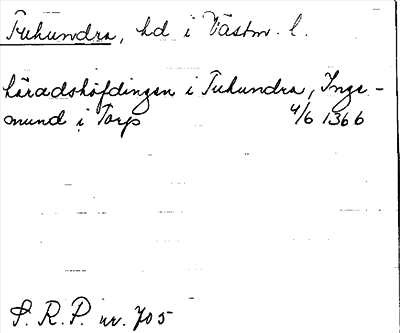 Tuhundra, hd i Västm. l.
häradshöfdingen i Tuhundra, Inge-
mund i Torp 4/6 1366
S. R. P. nr. 705